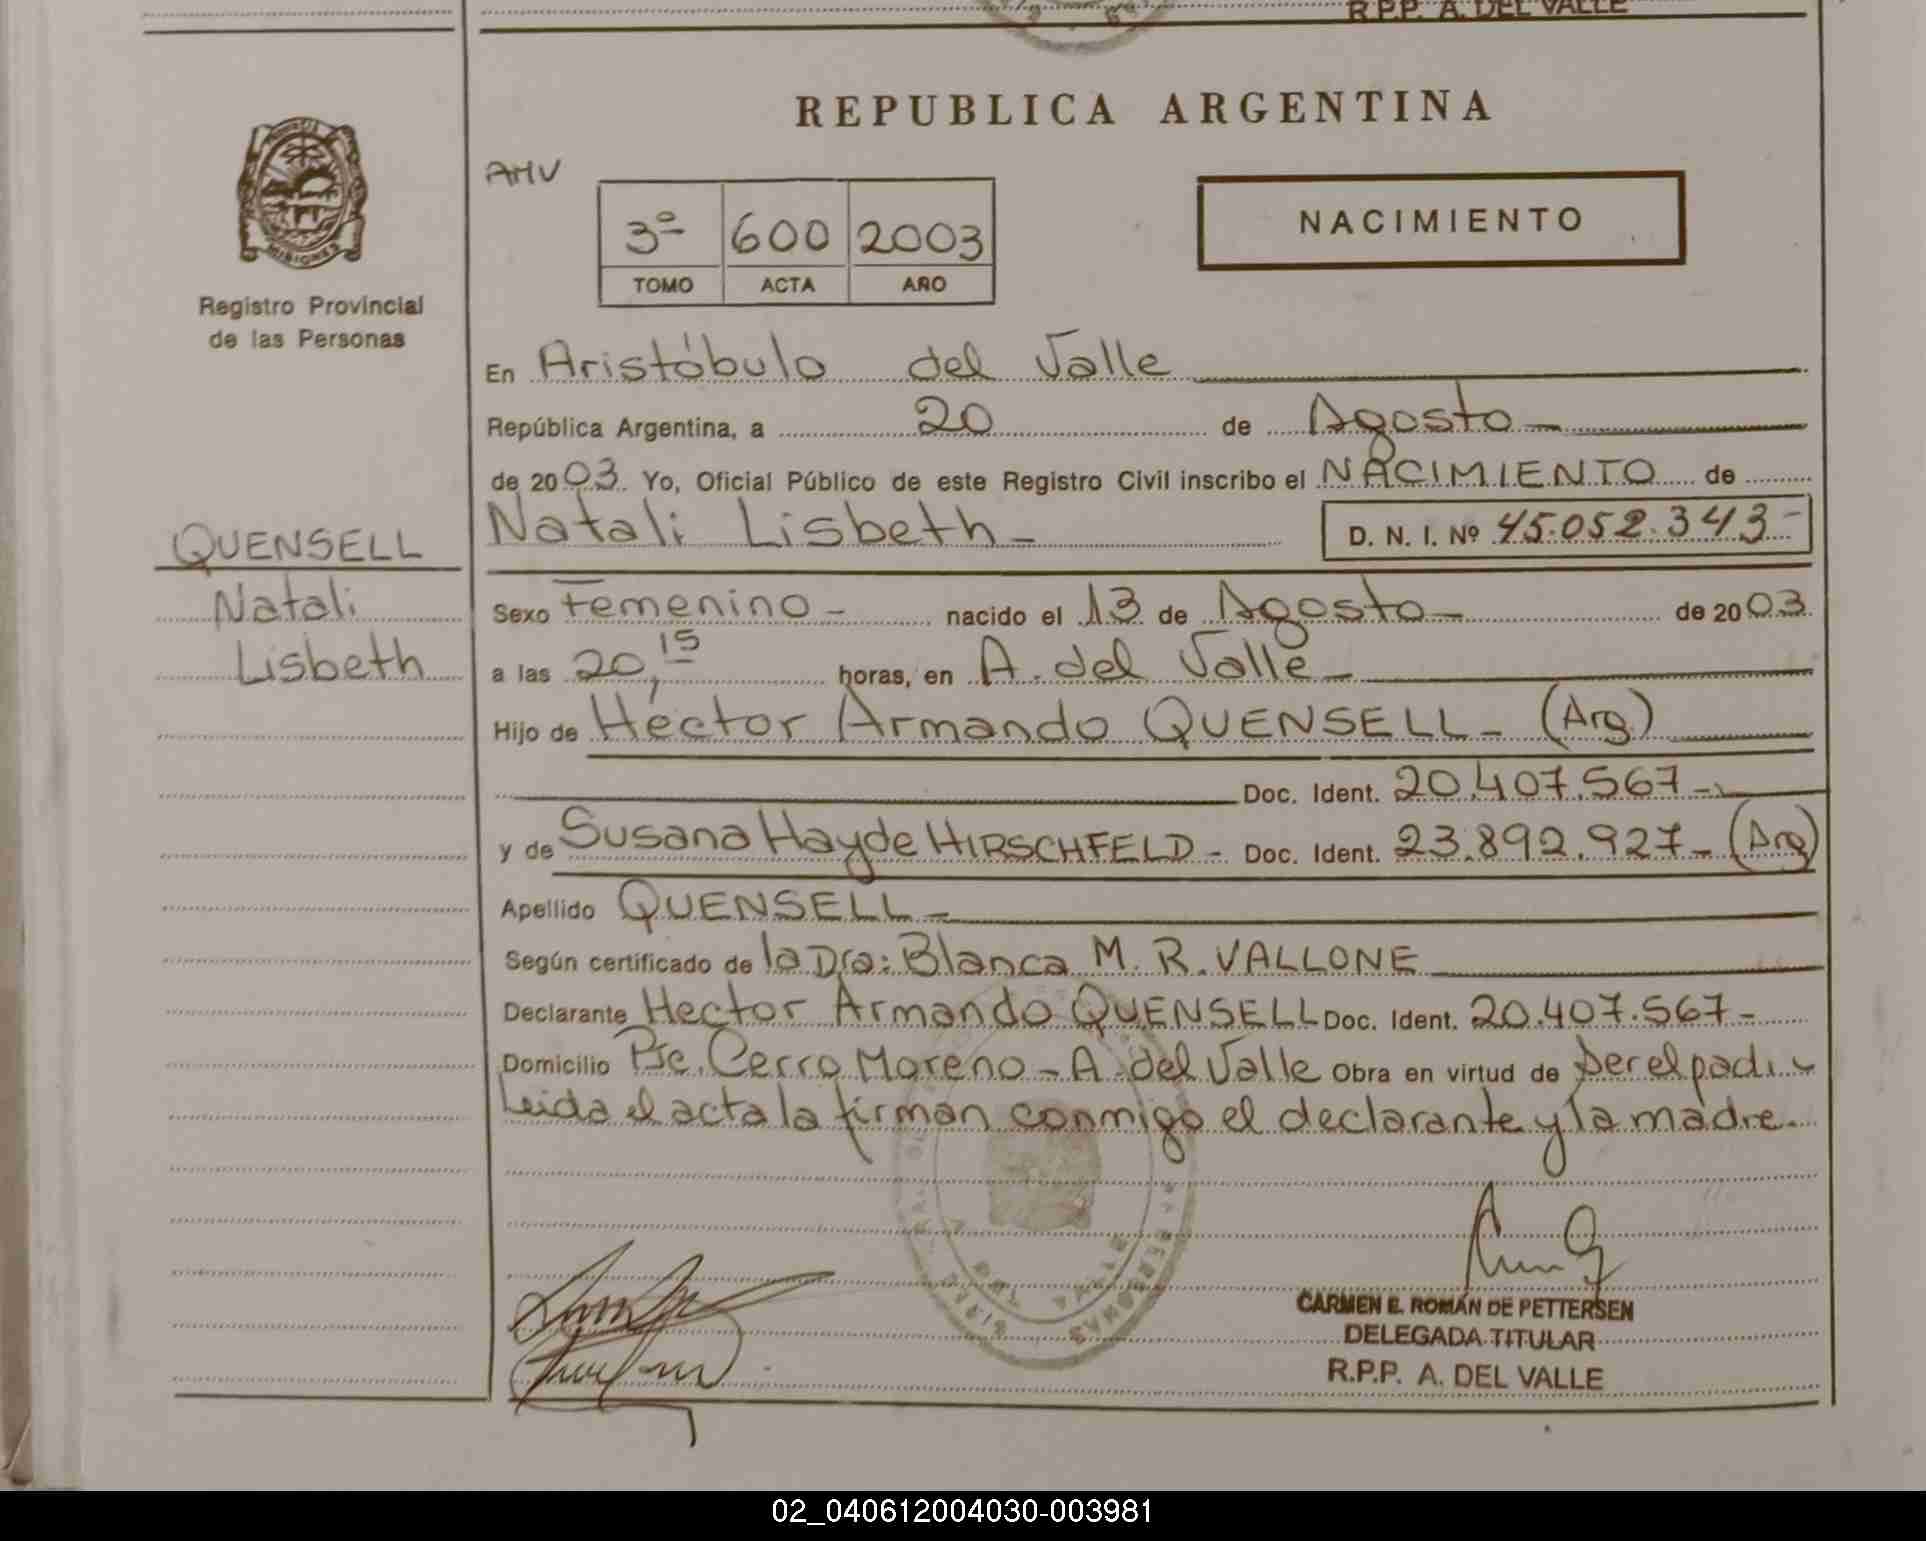 R.P.P. A. DEL VALLE
REPUBLICA ARGENTINA
AHV
3º 600 2003
TOMO ACTA AÑO
NACIMIENTO
MISIONES
Registro Provincial
de las Personas
En Aristóbulo del Valle
República Argentina, a 20 de Agosto
de 2003. Yo, Oficial Público de este Registro Civil inscribo el NACIMIENTO de
Natali Lisbeth - D. N. I. Nº 45.052.343-
QUENSELL
Natali
Lisbeth
Sexo Femenino - nacido el 13 de Agosto - de 2003.
a las 20,15 horas, en A. del Valle -
Hijo de Héctor Armando QUENSELL - (Arg)
Doc. Ident. 20.407.567-
y de Susana Hayde HIRSCHFELD - Doc. Ident. 23.892.927- (Arg)
Apellido QUENSELL -
Según certificado de la Dra: Blanca M. R. VALLONE
Declarante Hector Armando QUENSELL Doc. Ident. 20.407.567-
Domicilio Pje. Cerro Moreno - A. del Valle Obra en virtud de ser el padre
Leida el acta la firman conmigo el declarante y la madre.
CARMEN E. ROMÁN DE PETTERSEN
DELEGADA TITULAR
R.P.P. A. DEL VALLE
02_040612004030-003981